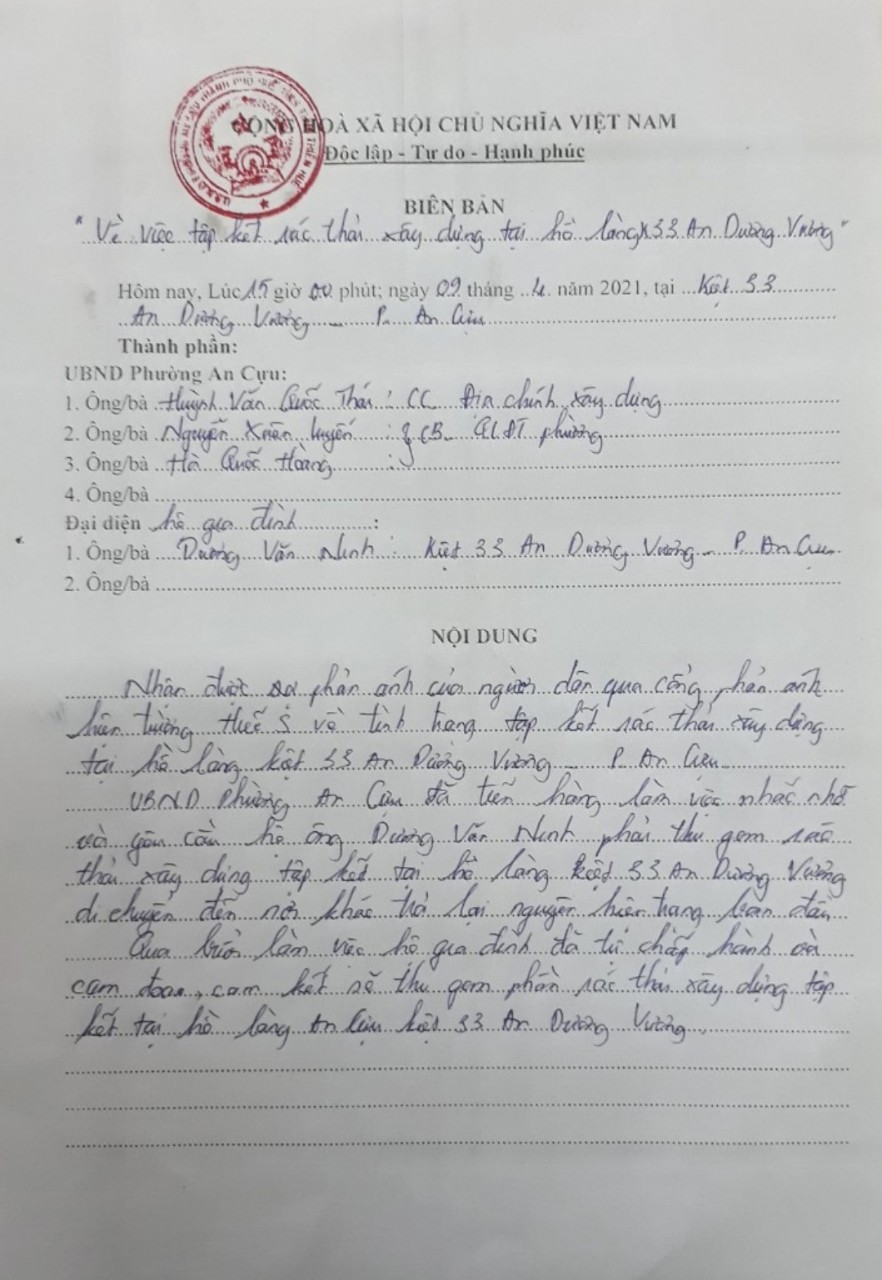 CỘNG HOÀ XÃ HỘI CHỦ NGHĨA VIỆT NAM
Độc lập - Tự do - Hạnh phúc
BIÊN BẢN
"Về việc tập kết rác thải xây dựng tại hồ làng K33 An Dương Vương"
Hôm nay, Lúc 15 giờ 00 phút; ngày 09 tháng 4 năm 2021, tại Kiệt 33
An Dương Vương - P. An Cựu
Thành phần:
UBND Phường An Cựu:
1. Ông/bà Huỳnh Văn Quốc Thái : CC Địa chính xây dựng
2. Ông/bà Nguyễn Xuân Luyến : CB QLĐT phường
3. Ông/bà Hà Quốc Hoàng :
4. Ông/bà
Đại diện hộ gia đình :
1. Ông/bà Dương Văn Ninh : Kiệt 33 An Dương Vương - P. An Cựu
2. Ông/bà
NỘI DUNG
Nhận được sự phản ánh của người dân qua cổng phản ánh
hiện trường về tình trạng tập kết rác thải xây dựng
tại hồ làng kiệt 33 An Dương Vương - P An Cựu
UBND Phường An Cựu đã tiến hàng làm việc nhắc nhở
và yêu cầu hộ ông Dương Văn Ninh phải thu gom rác
thải xây dựng tập kết tại hồ làng kiệt 33 An Dương Vương
di chuyển đến nơi khác trả lại nguyên hiện trạng ban đầu
Qua buổi làm việc hộ gia đình đã tự chấp hành và
cam đoan, cam kết sẽ thu gom phần rác thải xây dựng tập
kết tại hồ làng An Cựu kiệt 33 An Dương Vương.